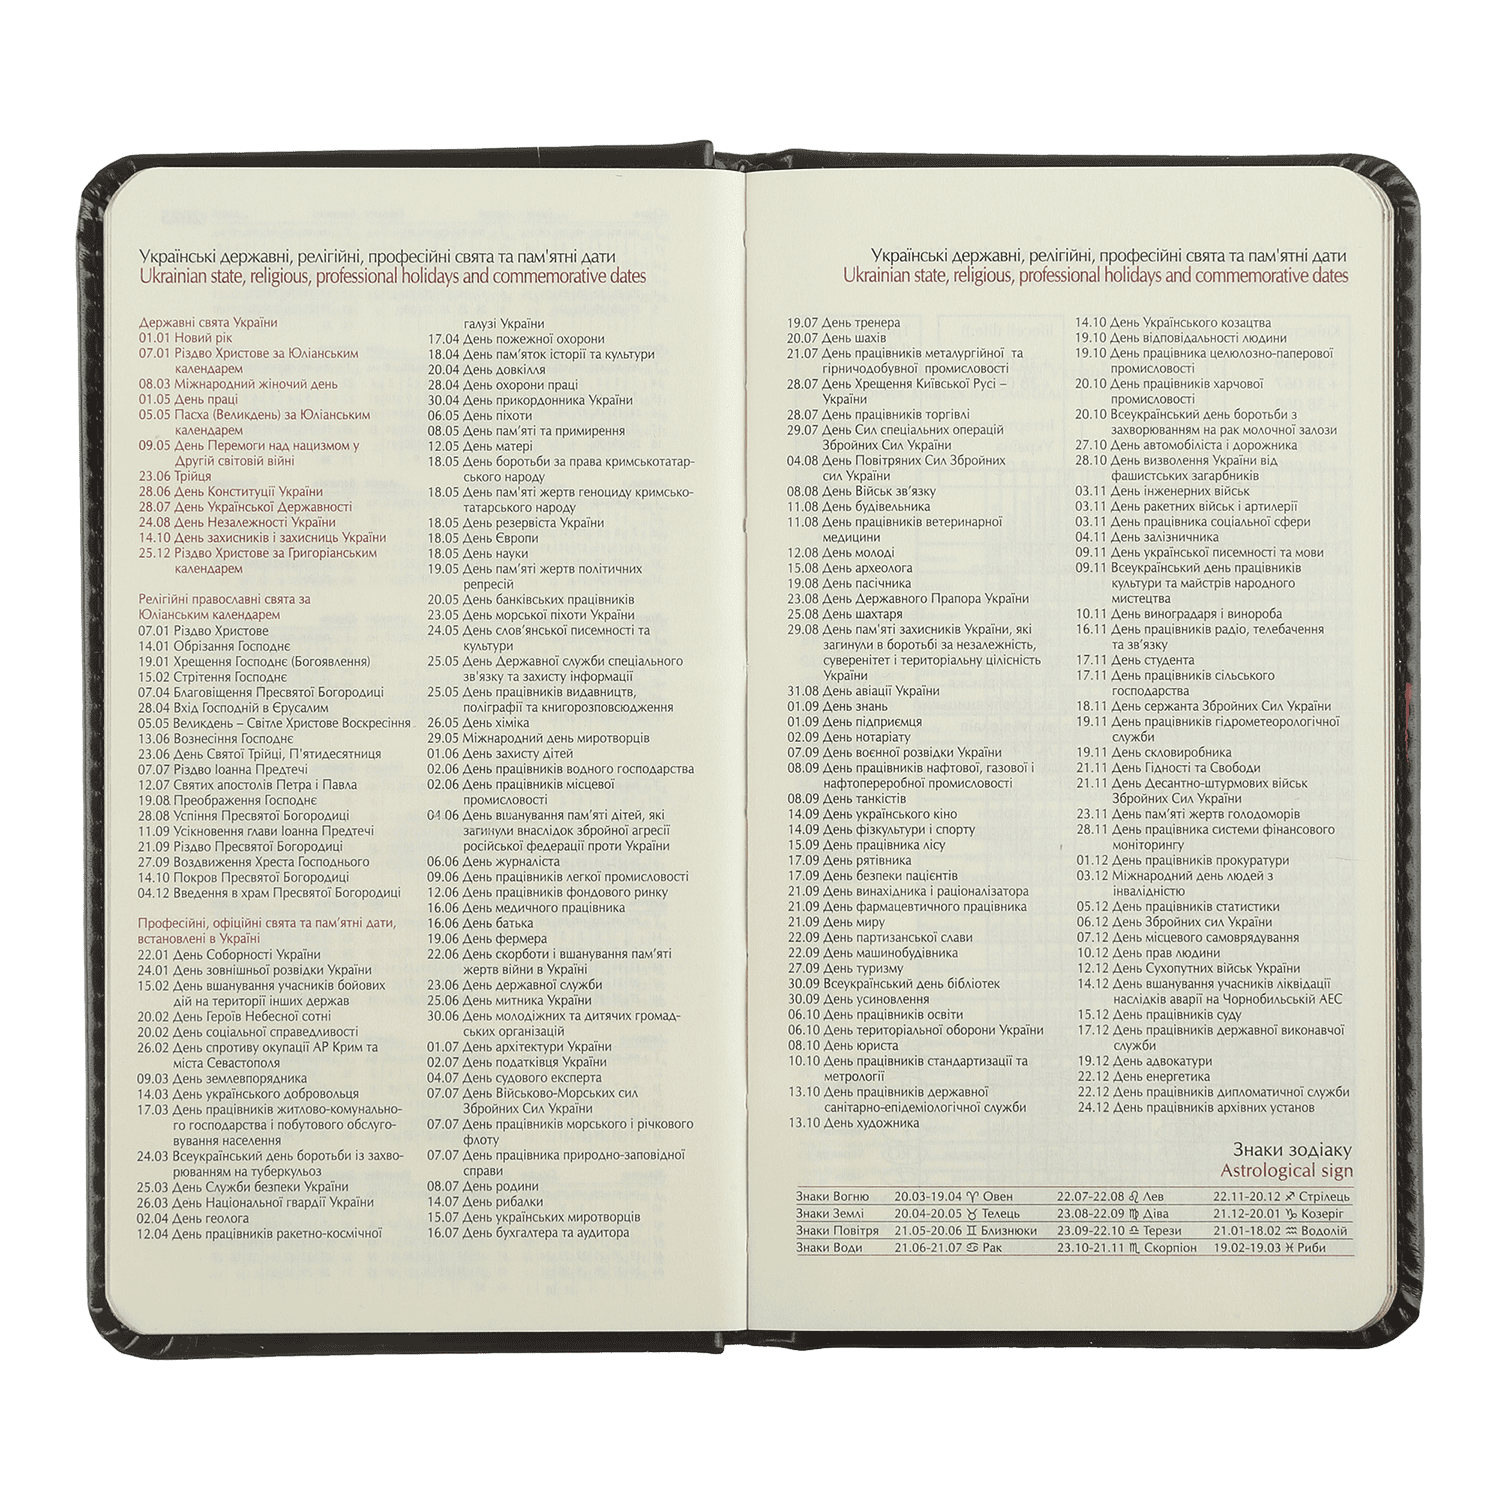 Українські державні, релігійні, професійні свята та пам'ятні дати
Ukrainian state, religious, professional holidays and commemorative dates
Державні свята України
01.01 Новий рік
07.01 Різдво Христове за Юліанським
календарем
08.03 Міжнародний жіночий день
01.05 День праці
05.05 Пасха (Великдень) за Юліанським
календарем
09.05 День Перемоги над нацизмом у
Другій світовій війні
23.06 Трійця
28.06 День Конституції України
28.07 День Української Державності
24.08 День Незалежності України
14.10 День захисників і захисниць України
25.12 Різдво Христове за Григоріанським
календарем
Релігійні православні свята за
Юліанським календарем
07.01 Різдво Христове
14.01 Обрізання Господнє
19.01 Хрещення Господнє (Богоявлення)
15.02 Стрітення Господнє
07.04 Благовіщення Пресвятої Богородиці
28.04 Вхід Господній в Єрусалим
05.05 Великдень – Світле Христове Воскресіння
13.06 Вознесіння Господнє
23.06 День Святої Трійці, П'ятидесятниця
07.07 Різдво Іоанна Предтечі
12.07 Святих апостолів Петра і Павла
19.08 Преображення Господнє
28.08 Успіння Пресвятої Богородиці
11.09 Усікновення глави Іоанна Предтечі
21.09 Різдво Пресвятої Богородиці
27.09 Воздвиження Хреста Господнього
14.10 Покров Пресвятої Богородиці
04.12 Введення в храм Пресвятої Богородиці
Професійні, офіційні свята та пам’ятні дати,
встановлені в Україні
22.01 День Соборності України
24.01 День зовнішньої розвідки України
15.02 День вшанування учасників бойових
дій на території інших держав
20.02 День Героїв Небесної сотні
20.02 День соціальної справедливості
26.02 День спротиву окупації АР Крим та
міста Севастополя
09.03 День землевпорядника
14.03 День українського добровольця
17.03 День працівників житлово-комунально-
го господарства і побутового обслуго-
вування населення
24.03 Всеукраїнський день боротьби із захво-
рюванням на туберкульоз
25.03 День Служби безпеки України
26.03 День Національної гвардії України
02.04 День геолога
12.04 День працівників ракетно-космічної
галузі України
17.04 День пожежної охорони
18.04 День пам’яток історії та культури
20.04 День довкілля
28.04 День охорони праці
30.04 День прикордонника України
06.05 День піхоти
08.05 День пам’яті та примирення
12.05 День матері
18.05 День боротьби за права кримськотатар-
ського народу
18.05 День пам'яті жертв геноциду кримсько-
татарського народу
18.05 День резервіста України
18.05 День Європи
18.05 День науки
19.05 День пам’яті жертв політичних
репресій
20.05 День банківських працівників
23.05 День морської піхоти України
24.05 День слов’янської писемності та
культури
25.05 День Державної служби спеціального
зв'язку та захисту інформації
25.05 День працівників видавництв,
поліграфії та книгорозповсюдження
26.05 День хіміка
29.05 Міжнародний день миротворців
01.06 День захисту дітей
02.06 День працівників водного господарства
02.06 День працівників місцевої
промисловості
04.06 День вшанування пам’яті дітей, які
загинули внаслідок збройної агресії
російської федерації проти України
06.06 День журналіста
09.06 День працівників легкої промисловості
12.06 День працівників фондового ринку
16.06 День медичного працівника
16.06 День батька
19.06 День фермера
22.06 День скорботи і вшанування пам’яті
жертв війни в Україні
23.06 День державної служби
25.06 День митника України
30.06 День молодіжних та дитячих громад-
ських організацій
01.07 День архітектури України
02.07 День податківця України
04.07 День судового експерта
07.07 День Військово-Морських сил
Збройних Сил України
07.07 День працівників морського і річкового
флоту
07.07 День працівника природно-заповідної
справи
08.07 День родини
14.07 День рибалки
15.07 День українських миротворців
16.07 День бухгалтера та аудитора
Українські державні, релігійні, професійні свята та пам'ятні дати
Ukrainian state, religious, professional holidays and commemorative dates
19.07 День тренера
20.07 День шахів
21.07 День працівників металургійної та
гірничодобувної промисловості
28.07 День Хрещення Київської Русі –
України
28.07 День працівників торгівлі
29.07 День Сил спеціальних операцій
Збройних Сил України
04.08 День Повітряних Сил Збройних
сил України
08.08 День Військ зв’язку
11.08 День будівельника
11.08 День працівників ветеринарної
медицини
12.08 День молоді
15.08 День археолога
19.08 День пасічника
23.08 День Державного Прапора України
25.08 День шахтаря
29.08 День пам'яті захисників України, які
загинули в боротьбі за незалежність,
суверенітет і територіальну цілісність
України
31.08 День авіації України
01.09 День знань
01.09 День підприємця
02.09 День нотаріату
07.09 День воєнної розвідки України
08.09 День працівників нафтової, газової і
нафтопереробної промисловості
08.09 День танкістів
14.09 День українського кіно
14.09 День фізкультури і спорту
15.09 День працівника лісу
17.09 День рятівника
17.09 День безпеки пацієнтів
21.09 День винахідника і раціоналізатора
21.09 День фармацевтичного працівника
21.09 День миру
22.09 День партизанської слави
22.09 День машинобудівника
27.09 День туризму
30.09 Всеукраїнський день бібліотек
30.09 День усиновлення
06.10 День працівників освіти
06.10 День територіальної оборони України
08.10 День юриста
10.10 День працівників стандартизації та
метрології
13.10 День працівників державної
санітарно-епідеміологічної служби
13.10 День художника
14.10 День Українського козацтва
19.10 День відповідальності людини
19.10 День працівника целюлозно-паперової
промисловості
20.10 День працівників харчової
промисловості
20.10 Всеукраїнський день боротьби з
захворюванням на рак молочної залози
27.10 День автомобіліста і дорожника
28.10 День визволення України від
фашистських загарбників
03.11 День інженерних військ
03.11 День ракетних військ і артилерії
03.11 День працівника соціальної сфери
04.11 День залізничника
09.11 День української писемності та мови
09.11 Всеукраїнський день працівників
культури та майстрів народного
мистецтва
10.11 День виноградаря і винороба
16.11 День працівників радіо, телебачення
та зв’язку
17.11 День студента
17.11 День працівників сільського
господарства
18.11 День сержанта Збройних Сил України
19.11 День працівників гідрометеорологічної
служби
19.11 День скловиробника
21.11 День Гідності та Свободи
21.11 День Десантно-штурмових військ
Збройних Сил України
23.11 День пам’яті жертв голодоморів
28.11 День працівника системи фінансового
моніторингу
01.12 День працівників прокуратури
03.12 Міжнародний день людей з
інвалідністю
05.12 День працівників статистики
06.12 День Збройних сил України
07.12 День місцевого самоврядування
10.12 День прав людини
12.12 День Сухопутних військ України
14.12 День вшанування учасників ліквідації
наслідків аварії на Чорнобильській АЕС
15.12 День працівників суду
17.12 День працівників державної виконавчої
служби
19.12 День адвокатури
22.12 День енергетика
22.12 День працівників дипломатичної служби
24.12 День працівників архівних установ
Знаки зодіаку
Astrological sign
Знаки Вогню 20.03-19.04 ♈ Овен 22.07-22.08 ♌ Лев 22.11-20.12 ♐ Стрілець
Знаки Землі 20.04-20.05 ♉ Телець 23.08-22.09 ♍ Діва 21.12-20.01 ♑ Козеріг
Знаки Повітря 21.05-20.06 ♊ Близнюки 23.09-22.10 ♎ Терези 21.01-18.02 ♒ Водолій
Знаки Води 21.06-21.07 ♋ Рак 23.10-21.11 ♏ Скорпіон 19.02-19.03 ♓ Риби